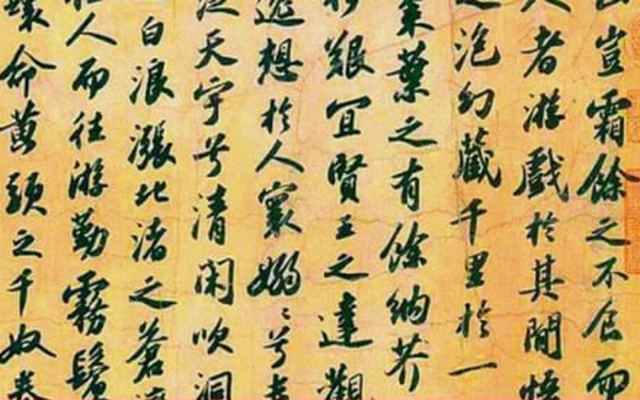 豈霜餘之不食而
人者游戲於其間悟
泡幻藏千里於一
葉之有餘納芥
艱宜賢王之達觀
逸想於人寰嫋〻兮
泛天宇兮清閑吹洞
白浪漲北渚之蒼
人而往游勤霧鬢
鬟命黃頭之千奴卷